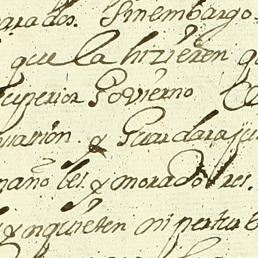 parados. Sinembargo
que la hizieren q
Superior Govierno
uasion. y Guardaraju
mano les. y moradores.
y ynquieten ni pertur b